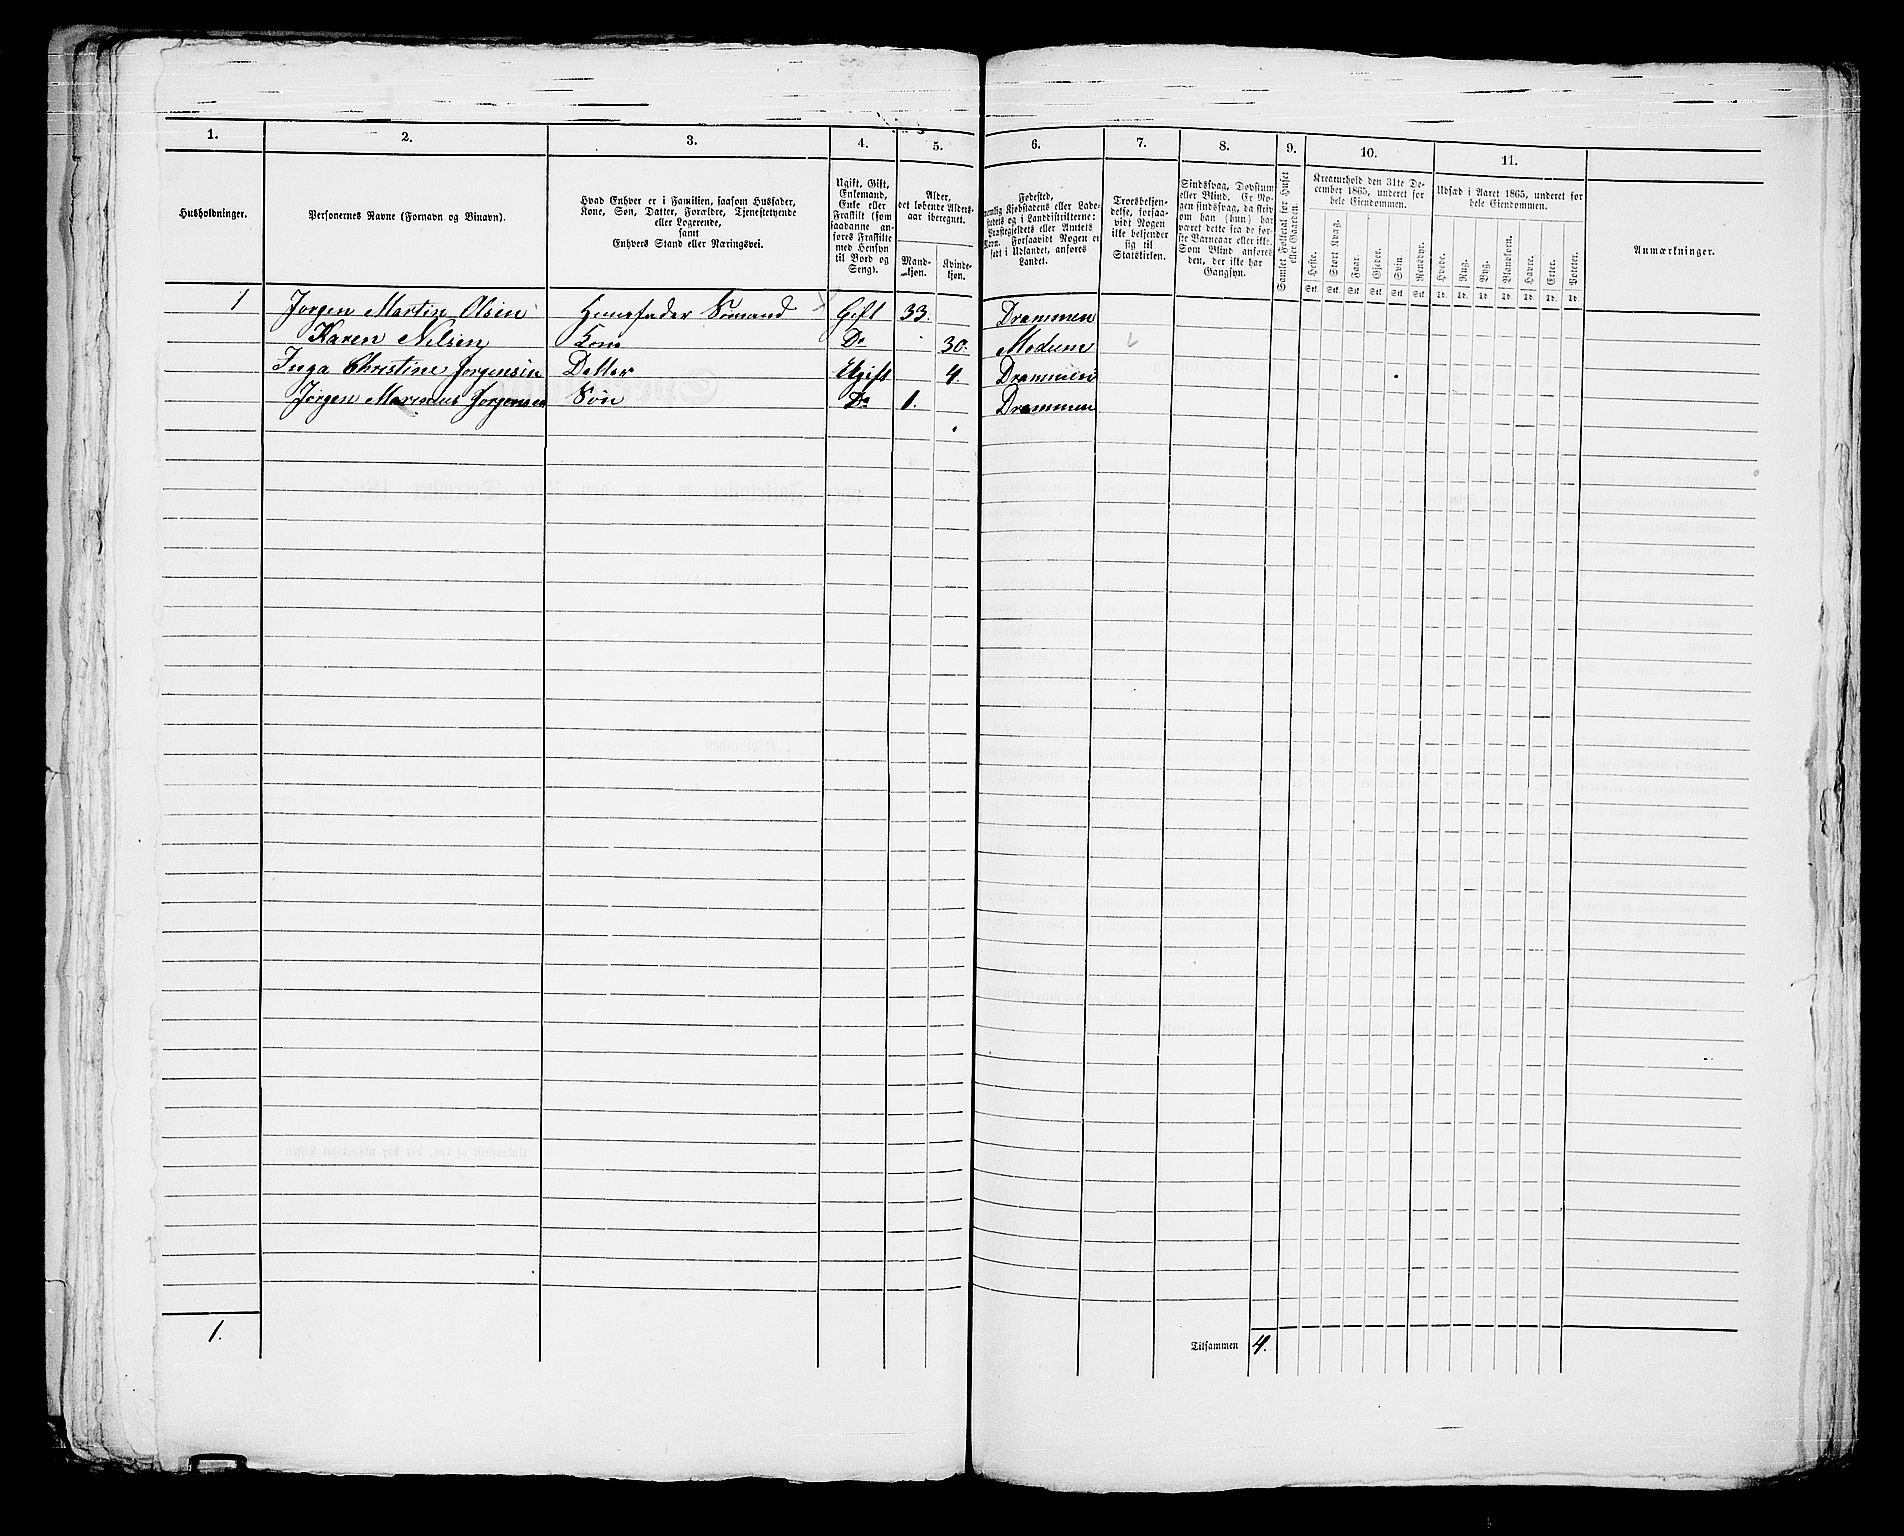 1. 2. 3. 4. 5. 6. 7. 8. 9. 10. 11.
Husholdninger.
Personernes Navne (Fornavn og Binavn).
Hvad Enhver er i Familien, saasom Husfader,
Kone, Søn, Datter, Forældre, Tjenestetyende
eller Logerende,
samt
Enhvers Stand eller Næringsvei.
Ugift, Gift,
Enkemand,
Enke eller
Fraskilt (som
saadanne an-
føres Fraskilte
med Hensyn
til Bord og
Seng).
Alder,
det løbende Alders-
aar iberegnet.
Mand-
kjøn.
Kvinde-
kjøn.
Fødested,
nemlig Kjøbstadens eller Lade-
stedets og i Landdistrikterne:
Præstegjeldets eller Amtets
Navn. Forsaavidt Nogen er
født i Udlandet, anføres
Landet.
Troesbekjen-
delse, forsaa-
vidt Nogen
ikke bekjender
sig til
Statskirken.
Sindssvag, Døvstum
eller Blind. Er No-
gen sindssvag, da skrives
om han (hun) har
været dette fra de før-
ste Barneaar eller ikke.
Som Blind anføres
den, der ikke har
Gangsyn.
Samlet Folketal for Huset
eller Gaarden.
Kreaturhold den 31te De-
cember 1865, underet for
hele Eiendommen.
Heste. Stort Kvæg. Faar. Gjeder. Svin. Rensdyr.
Stk. Stk. Stk. Stk. Stk. Stk.
Udsæd i Aaret 1865, underet for
hele Eiendommen.
Hvede. Rug. Byg. Blandkorn. Havre. Erter. Poteter.
Td. Td. Td. Td. Td. Td. Td.
Anmærkninger.
1 Jørgen Martin Olsen Huusfader Sømand Gift 33. Drammen
Karen Nilsen Kone Do 30. Modum
Inga Christine Jørgensen Datter Ugift 4. Drammen
Jørgen Marinius Jørgensen Søn Do 1. Drammen
1.
Tilsammen 4.